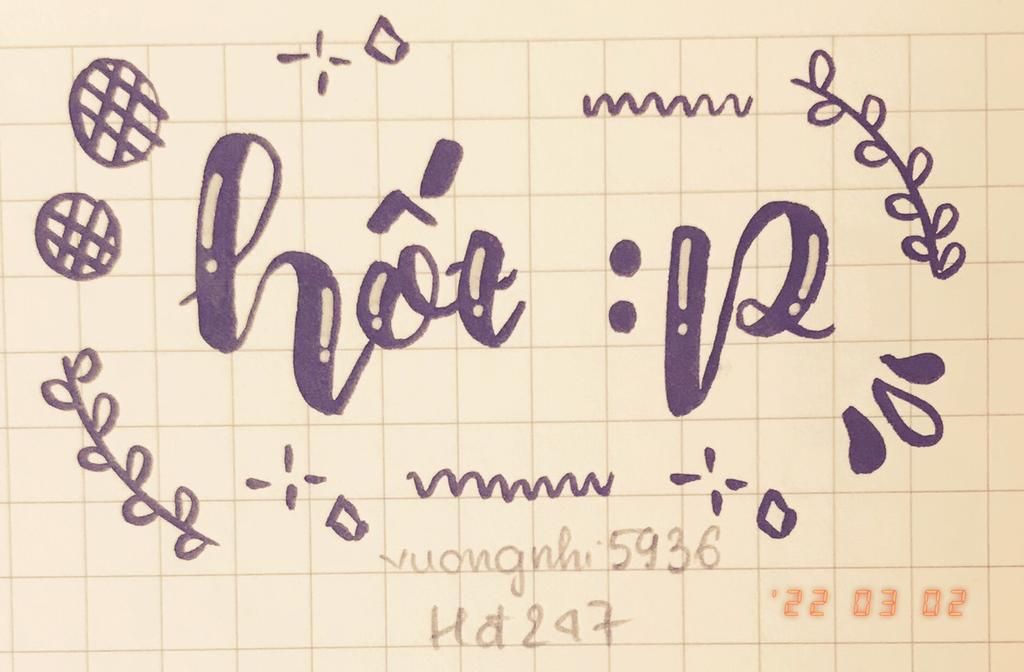 hốt :p
vuongnhi5936
Hd247
'22 03 02